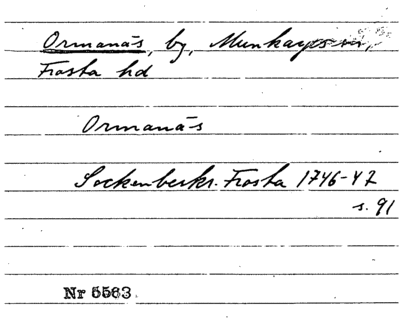 Ormanäs, by, Munkarps sn,
Frosta hd
Ormanäs
Sockenbeskr. Frosta 1746-47
s. 91
Nr 5563.